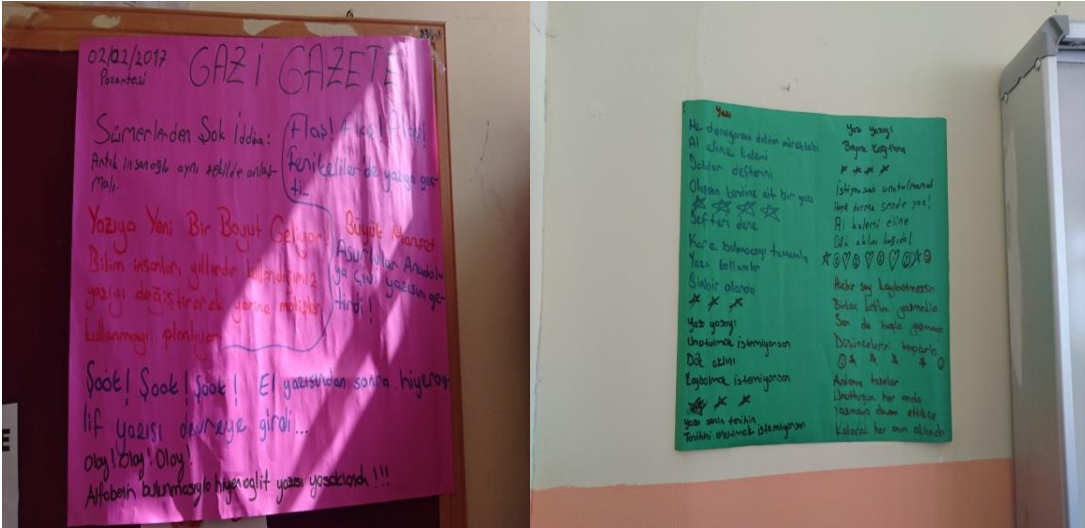 02/02/2017
Pazartesi
GAZİ GAZETE
Sümerlerden Şok İddia:
Antik insanoğlu aynı şekilde anlaş-
malı.
Flaş! Flaş! Flaş!
Fenikeliler'de yazıya geç-
ti...
Yazıya Yeni Bir Boyut Geliyor!
Bilim insanları yıllardır
yazıyı değiştirerek yerine
kullanmayı planlıyor.
Büyük Manşet
Asurlular Anadolu
ya Çivi yazısını ge-
tirdi!
Şook! Şook! Şook! El yazısından sonra hiyerog
lif yazısı devreye girdi...
Olay! Olay! Olay!
Alfabenin bulunmasıyla hiyeroglif yazısı yasaklandı!!!
Yazı
Ne duruyorsan doldur mürekkebi
Al eline kalemi
Doldur defterini
Olsasan kendine ait bir yazı
Defteri dene
Kare bulmacayı tamamla
Yazı kullanılır
Binbir alanda
Yaz yazıyı
Unutulmak istemiyorsan
Dök aklını
Kaybolmak istemiyorsan
Yazı senin tarihin
Tarihi unutmak istemiyorsan
Yaz yazıyı
Beyaz kağıtlara
İstiyorsan unutulmamak
Haydi durma sende yaz!
Al kalemi eline
Dök aklını
Hiçbir şey kaybetmezsin
Birkaç kelime yazmakla
Sen de başla yazmaya
Düşünceleri toparla
Anılarını tazeler
Unuttuğun her anda
Yazmaya devam ettikçe
Kalacak her anın aklında